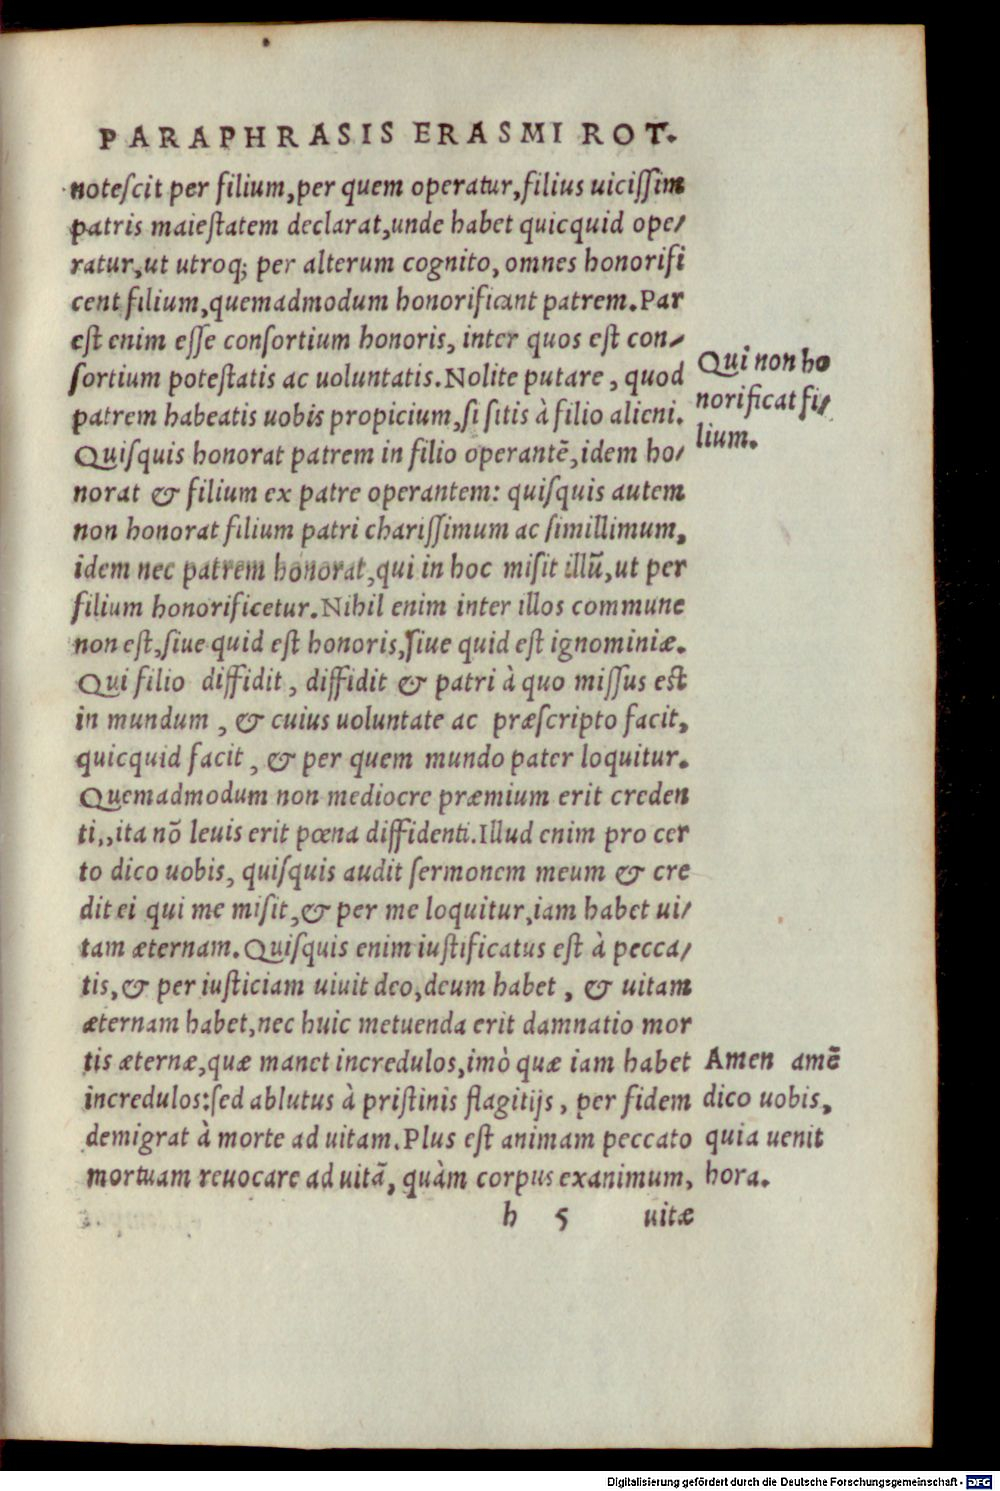 PARAPHRASIS ERASMI ROT.
noteſcit per filium,per quem operatur,filius uiciſſim
patris maieſtatem declarat,unde habet quicquid ope/
ratur,ut utroq; per alterum cognito, omnes honorifi
cent filium,quemadmodum honorificant patrem.Par
eſt enim eſſe conſortium honoris, inter quos eſt con/
ſortium poteſtatis ac uoluntatis.Nolite putare, quod
patrem habeatis uobis propicium,ſi ſitis à filio alieni.
Quiſquis honorat patrem in filio operantē,idem ho/
norat & filium ex patre operantem: quiſquis autem
non honorat filium patri chariſſimum ac ſimillimum,
idem nec patrem honorat,qui in hoc miſit illũ,ut per
filium honorificetur.Nihil enim inter illos commune
non eſt,ſiue quid eſt honoris,ſiue quid eſt ignominiæ.
Qui filio diffidit, diffidit & patri à quo miſſus eſt
in mundum, & cuius uoluntate ac præſcripto facit,
quicquid facit, & per quem mundo pater loquitur.
Quemadmodum non mediocre præmium erit creden
ti,,ita nõ leuis erit pœna diffidenti.Illud enim pro cer
to dico uobis, quiſquis audit ſermonem meum & cre
dit ei qui me miſit,& per me loquitur,iam habet ui/
tam æternam.Quiſquis enim iuſtificatus eſt à pecca/
tis,& per iuſticiam uiuit deo,deum habet, & uitam
æternam habet,nec huic metuenda erit damnatio mor
tis æternæ,quæ manet incredulos,imò quæ iam habet
incredulos:ſed ablutus à priſtinis flagitijs, per fidem
demigrat à morte ad uitam.Plus eſt animam peccato
mortuam reuocare ad uitã, quàm corpus exanimum,
h 5 uitæ
Qui non ho
norificat fi/
lium.
Amen amē
dico uobis,
quia uenit
hora.
Digitalisierung gefördert durch die Deutsche Forschungsgemeinschaft - DFG